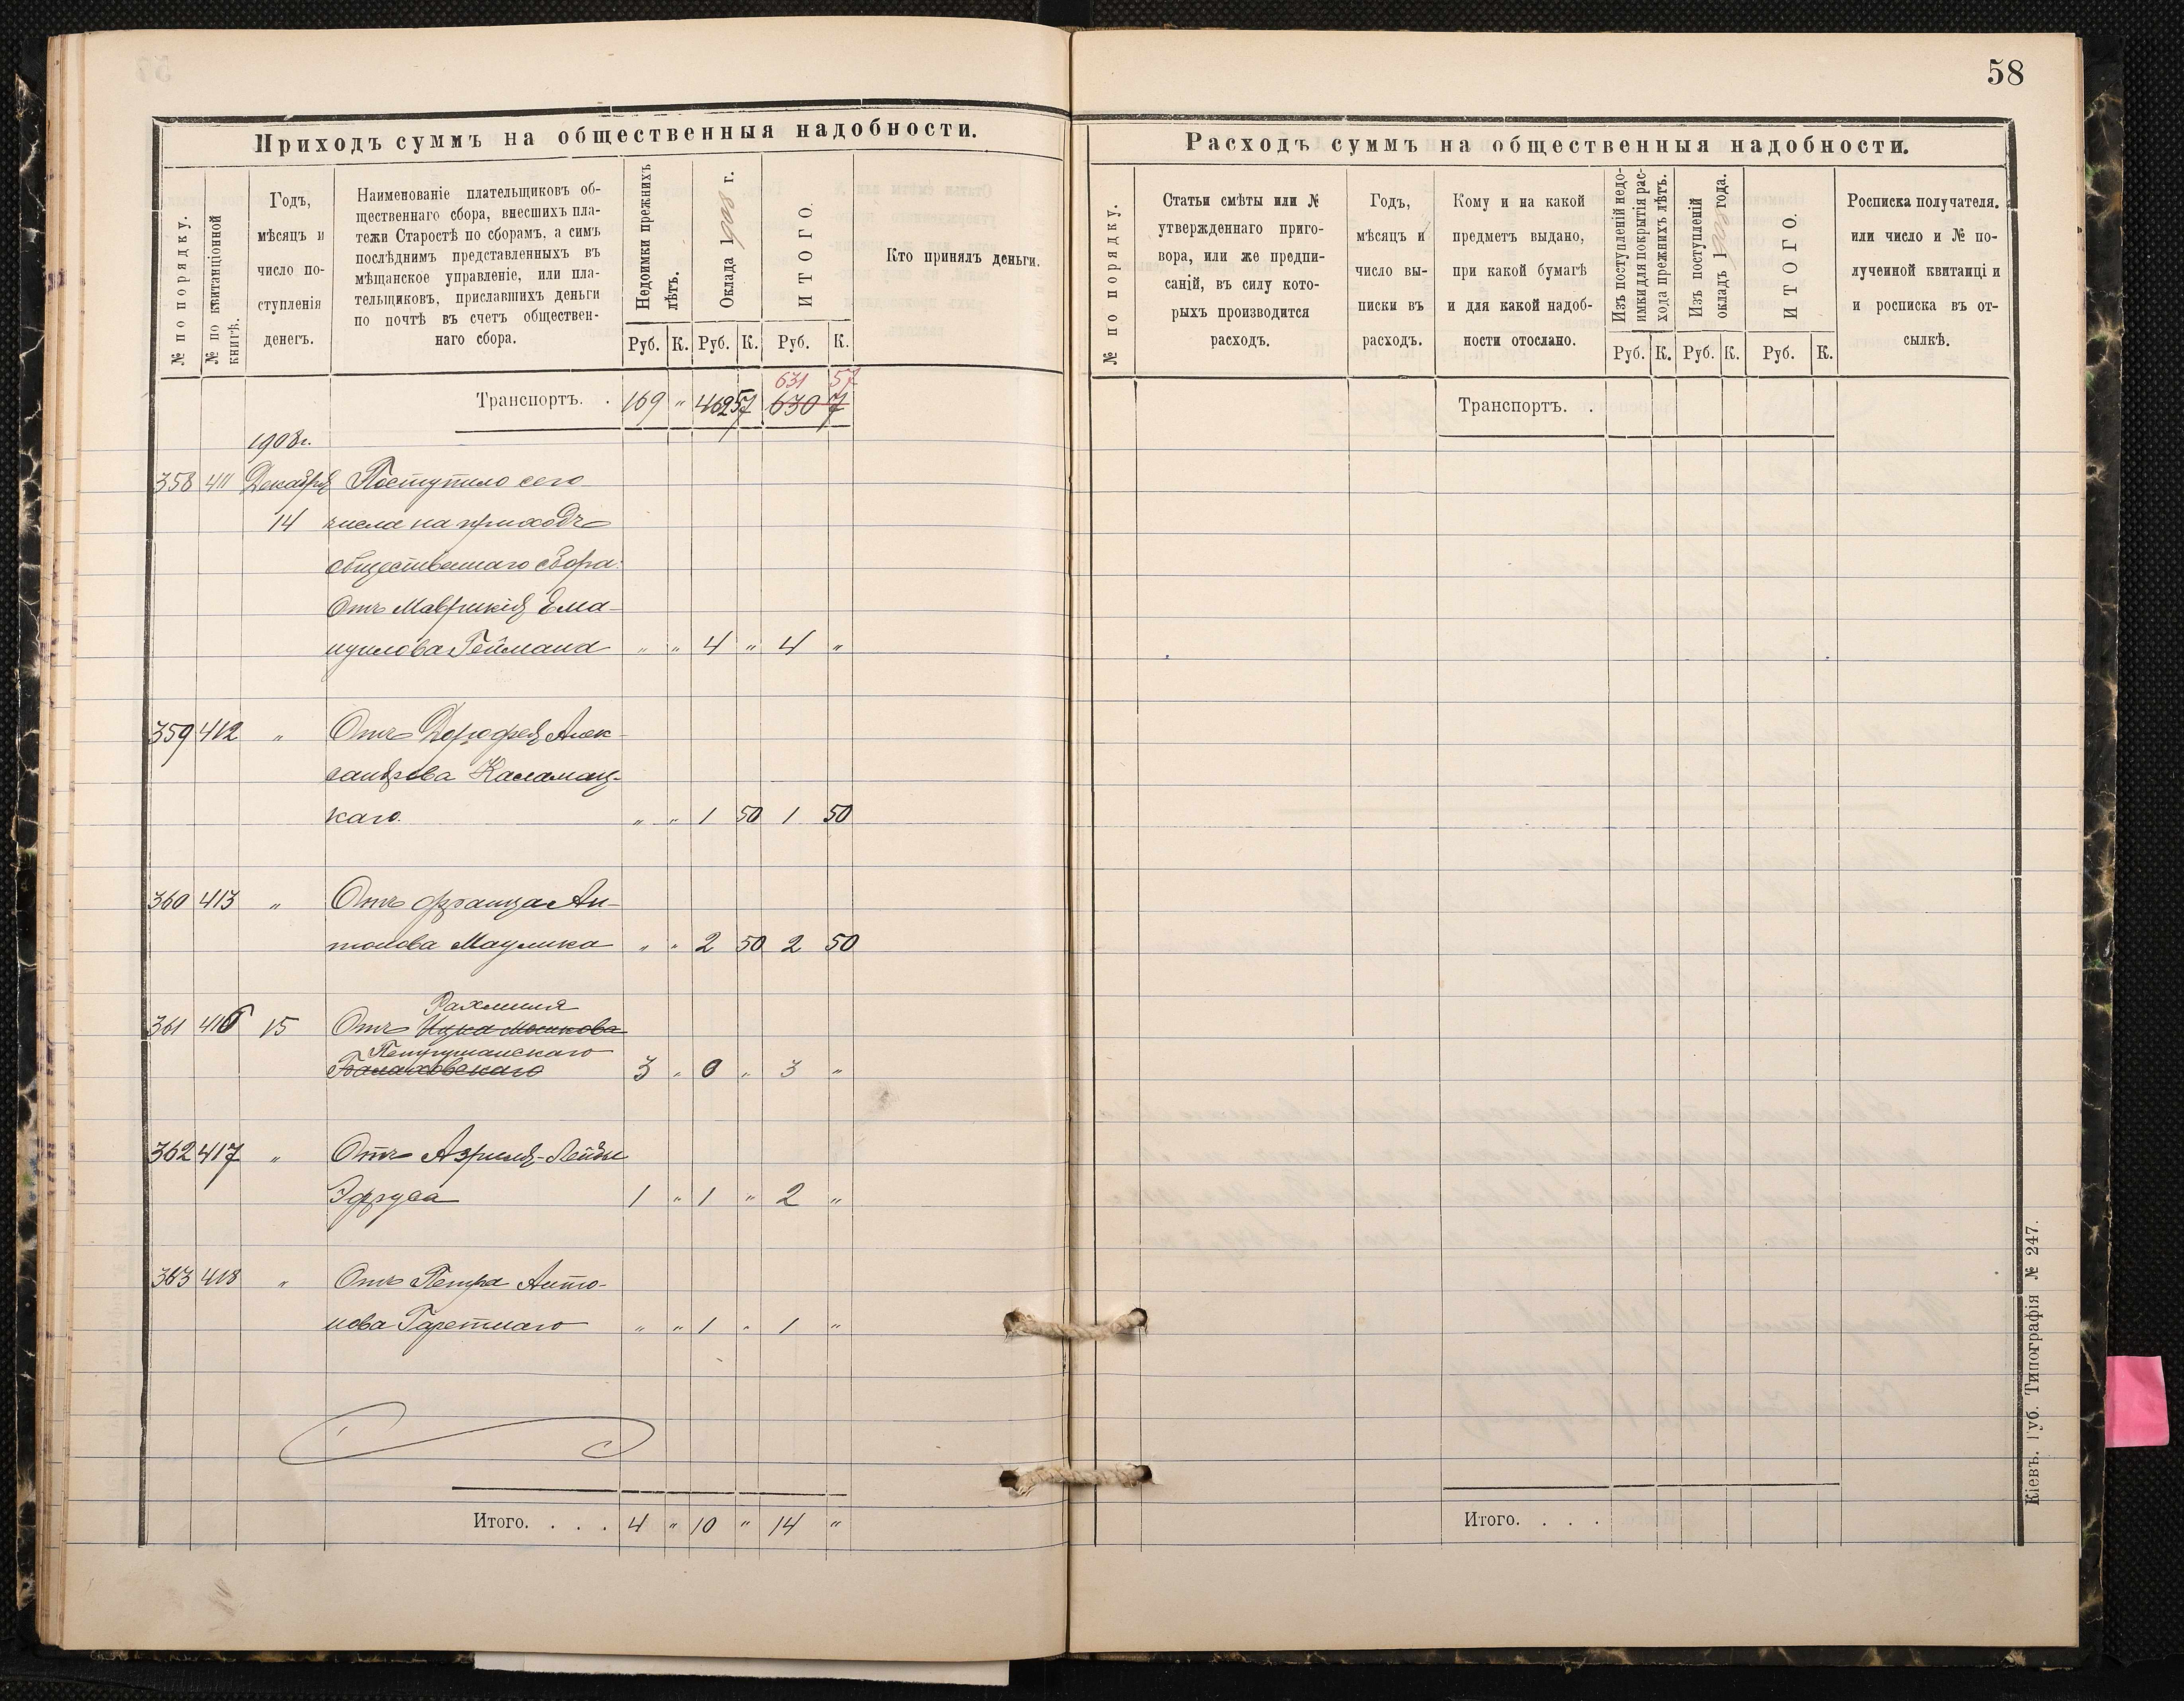 58
Приходъ суммъ на общественныя надобности.
№ по порядку.
№ по квитанціонной книгѣ.
Годъ,
мѣсяцъ и
число по-
ступленія
денегъ.
Наименованіе плательщиковъ об-
щественнаго сбора, внесшихъ пла-
тежи Старостѣ по сборамъ, а симъ
послѣднимъ представленныхъ въ
мѣщанское управленіе, или пла-
тельщиковъ, приславшихъ деньги
по почтѣ въ счетъ обществен-
наго сбора.
Недоимки прежнихъ лѣтъ.
Оклада 1908 г.
ИТОГО.
Кто принялъ деньги.
Руб. К. Руб. К. Руб. К.
631 57
Транспортъ. . 169 „ 462 57 630 7
1908 г.
358 411 Декабря Поступило сего
14 числа на приходъ
общественнаго сбора:
Отъ Маврикія Ема-
нуилова Геймана „ „ 4 „ 4 „
359 412 „ Отъ Дорофея Алек-
сандрова Каламац-
каго. „ „ 1 50 1 50
360 413 „ Отъ Франца Ан-
тонова Маулика „ „ 2 50 2 50
Рахмиля
361 416 15 Отъ Ицка Мошкова
Петрушанскаго
Балаховскаго 3 „ 0 „ 3 „
362 417 „ Отъ Азриля-Лейбы
Эфруса 1 „ 1 „ 2 „
363 418 „ Отъ Петра Анто-
нова Гаретнаго „ „ 1 „ 1 „
Итого. . . . 4 „ 10 „ 14 „
Расходъ суммъ на общественныя надобности.
№ по порядку.
Статьи смѣты или №
утвержденнаго приго-
вора, или же предпи-
саній, въ силу кото-
рыхъ производится
расходъ.
Годъ,
мѣсяцъ и
число вы-
писки въ
расходъ.
Кому и на какой
предметъ выдано,
при какой бумагѣ
и для какой надоб-
ности отослано.
Изъ поступленій недо-
имки для покрытія рас-
хода прежнихъ лѣтъ.
Изъ поступленій
окладъ 1908 года.
ИТОГО.
Росписка получателя.
или число и № по-
лученной квитанці и
и росписка въ от-
сылкѣ.
Руб. К. Руб. К. Руб. К.
Транспортъ. .
Итого. . . .
Кіевъ. Губ. Типографія № 247.